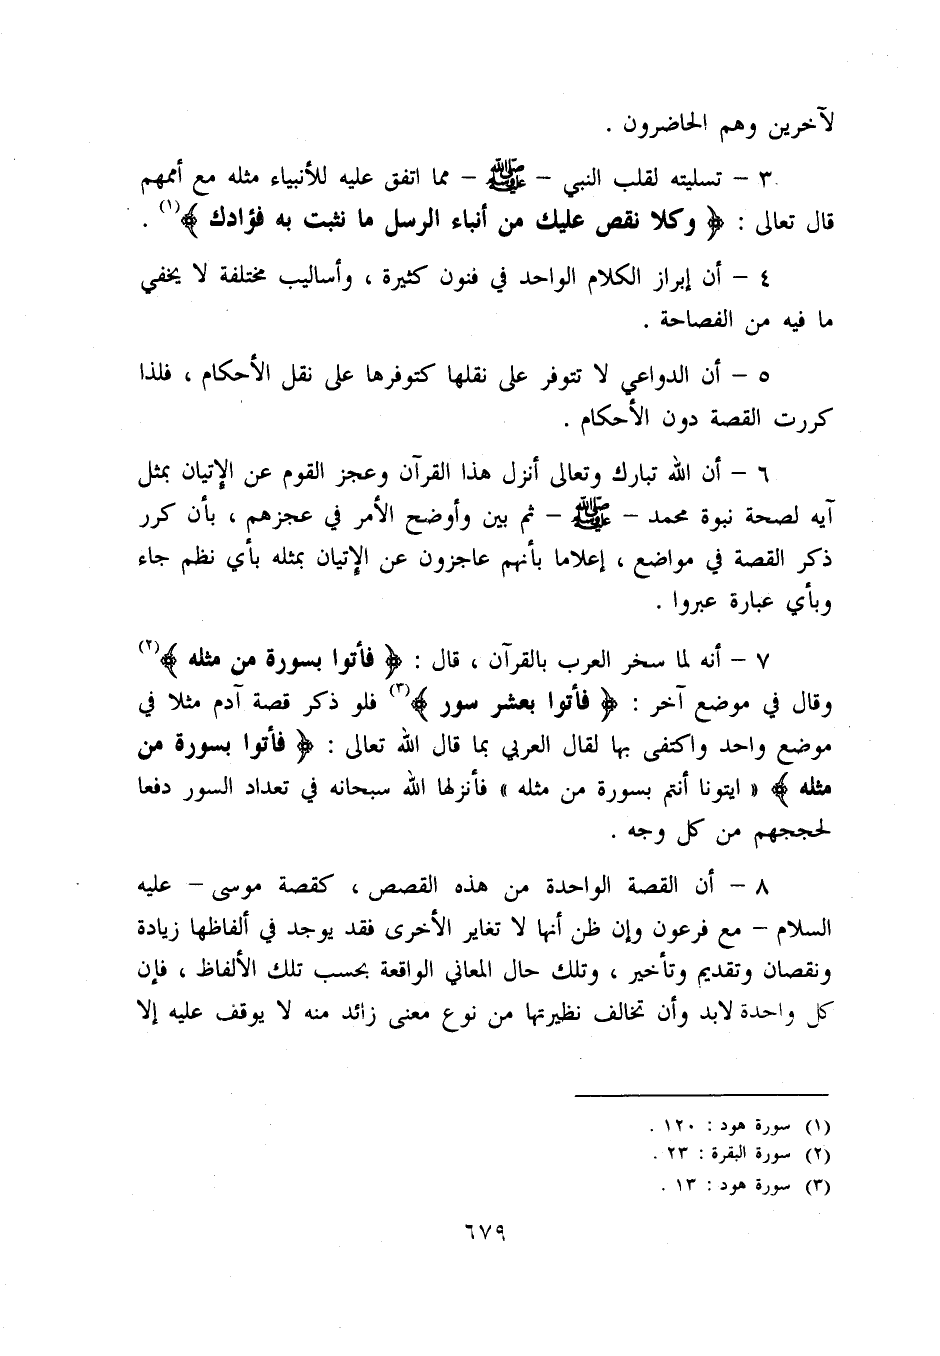 لآخرين وهم الحاضرون .
٣ – تسليته لقلب النبي – ﷺ – مما اتفق عليه للأنبياء مثله مع أممهم
قال تعالى : ﴿ وكلا نقص عليك من أنباء الرسل ما نثبت به فؤادك ﴾(١) .
٤ – أن إبراز الكلام الواحد في فنون كثيرة ، وأساليب مختلفة لا يخفي
ما فيه من الفصاحة .
٥ – أن الدواعي لا تتوفر على نقلها كتوفرها على نقل الأحكام ، فلذا
كررت القصة دون الأحكام .
٦ – أن الله تبارك وتعالى أنزل هذا القرآن وعجز القوم عن الإتيان بمثل
آيه لصحة نبوة محمد – ﷺ – ثم بين وأوضح الأمر في عجزهم ، بأن كرر
ذكر القصة في مواضع ، إعلاما بأنهم عاجزون عن الإتيان بمثله بأي نظم جاء
وبأي عبارة عبروا .
٧ – أنه لما سخر العرب بالقرآن ، قال : ﴿ فأتوا بسورة من مثله ﴾(٢)
وقال في موضع آخر : ﴿ فأتوا بعشر سور ﴾(٣) فلو ذكر قصة آدم مثلا في
موضع واحد واكتفى بها لقال العربي بما قال الله تعالى : ﴿ فأتوا بسورة من
مثله ﴾ « ايتونا أنتم بسورة من مثله » فأنزلها الله سبحانه في تعداد السور دفعا
لحججهم من كل وجه .
٨ – أن القصة الواحدة من هذه القصص ، كقصة موسى – عليه
السلام – مع فرعون وإن ظن أنها لا تغاير الأخرى فقد يوجد في ألفاظها زيادة
ونقصان وتقديم وتأخير ، وتلك حال المعاني الواقعة بحسب تلك الألفاظ ، فإن
كل واحدة لابد وأن تخالف نظيرتها من نوع معنى زائد منه لا يوقف عليه إلا
(١) سورة هود : ١٢٠ .
(٢) سورة البقرة : ٢٣ .
(٣) سورة هود : ١٣ .
٦٧٩